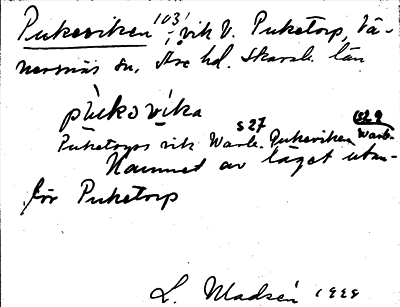 Pukeviken 103, vik V. Puketorp, Vä-
nersnäs sn, Åse hd. Skarab. län
pùkəvika
s 27 s 29
Puketorps vik Warb. Pukeviken Warb.
Namned av läget utan-
för Puketorp
L. Madsén